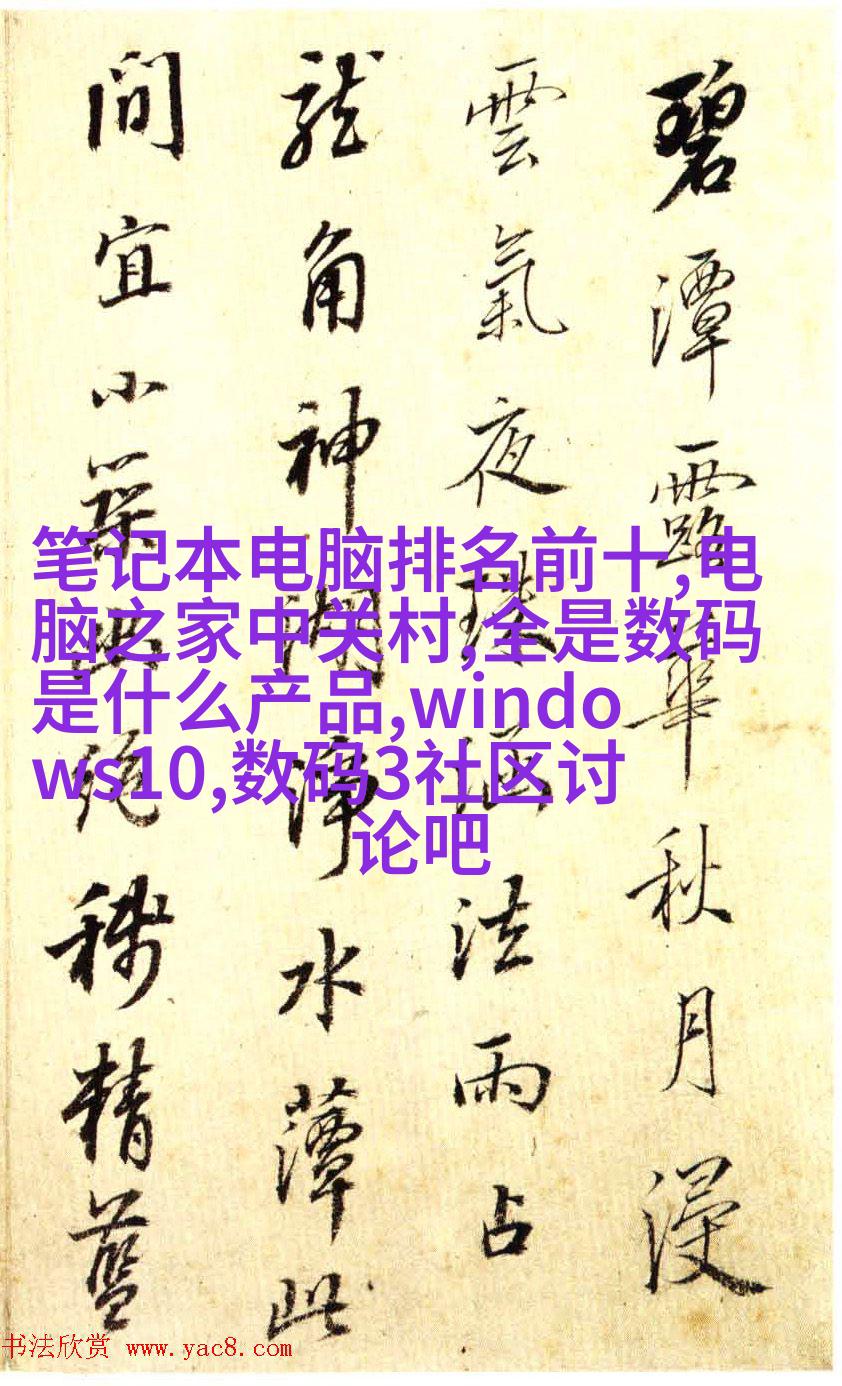 碧潭露華秋月浸
雲氣夜珠涵法雨占
龍角神湖淨水藫此
間宜小築幽絕移精藍
笔记本电脑排名前十,电
脑之家中关村,全是数码
是什么产品,windo
ws10,数码3社区讨
论吧
书法欣赏 www.yac8.com